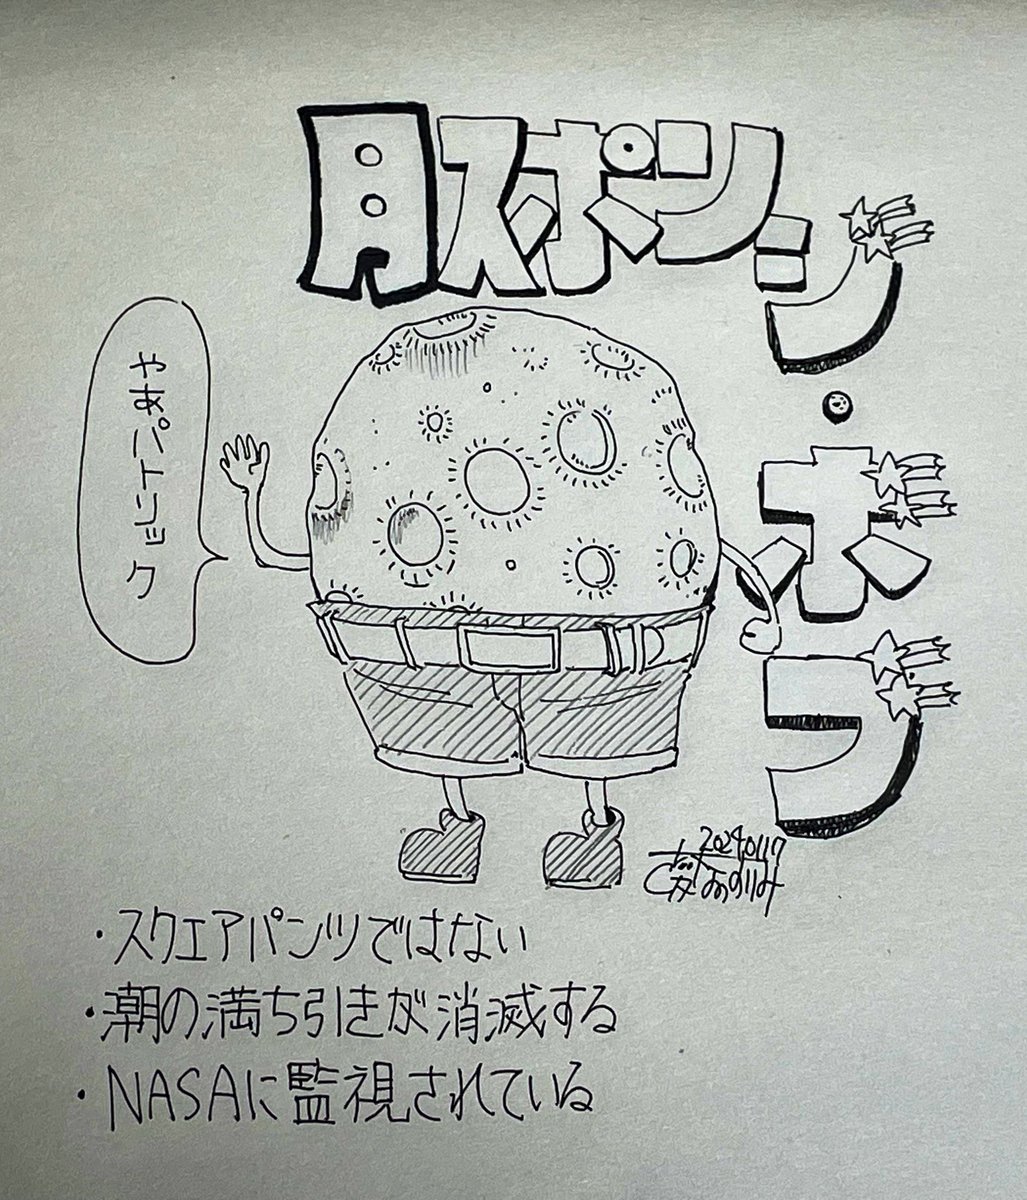 月スポンジ・ボブ
やぁパトリック
20240117
・スクエアパンツではない
・潮の満ち引きが消滅する
・NASAに監視されている